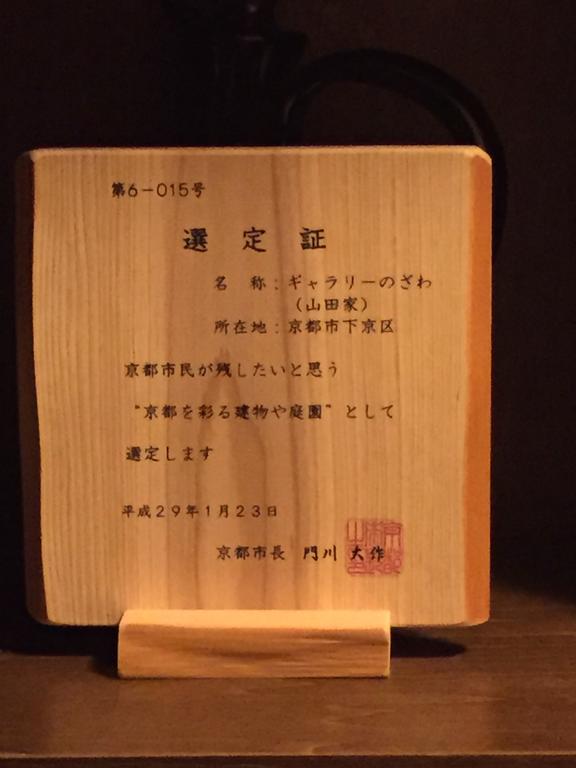 第6-015号
選 定 証
名 称：ギャラリーのざわ
（山田家）
所在地：京都市下京区
京都市民が残したいと思う
“京都を彩る建物や庭園”として
選定します
平成29年1月23日
京都市長 門川 大作